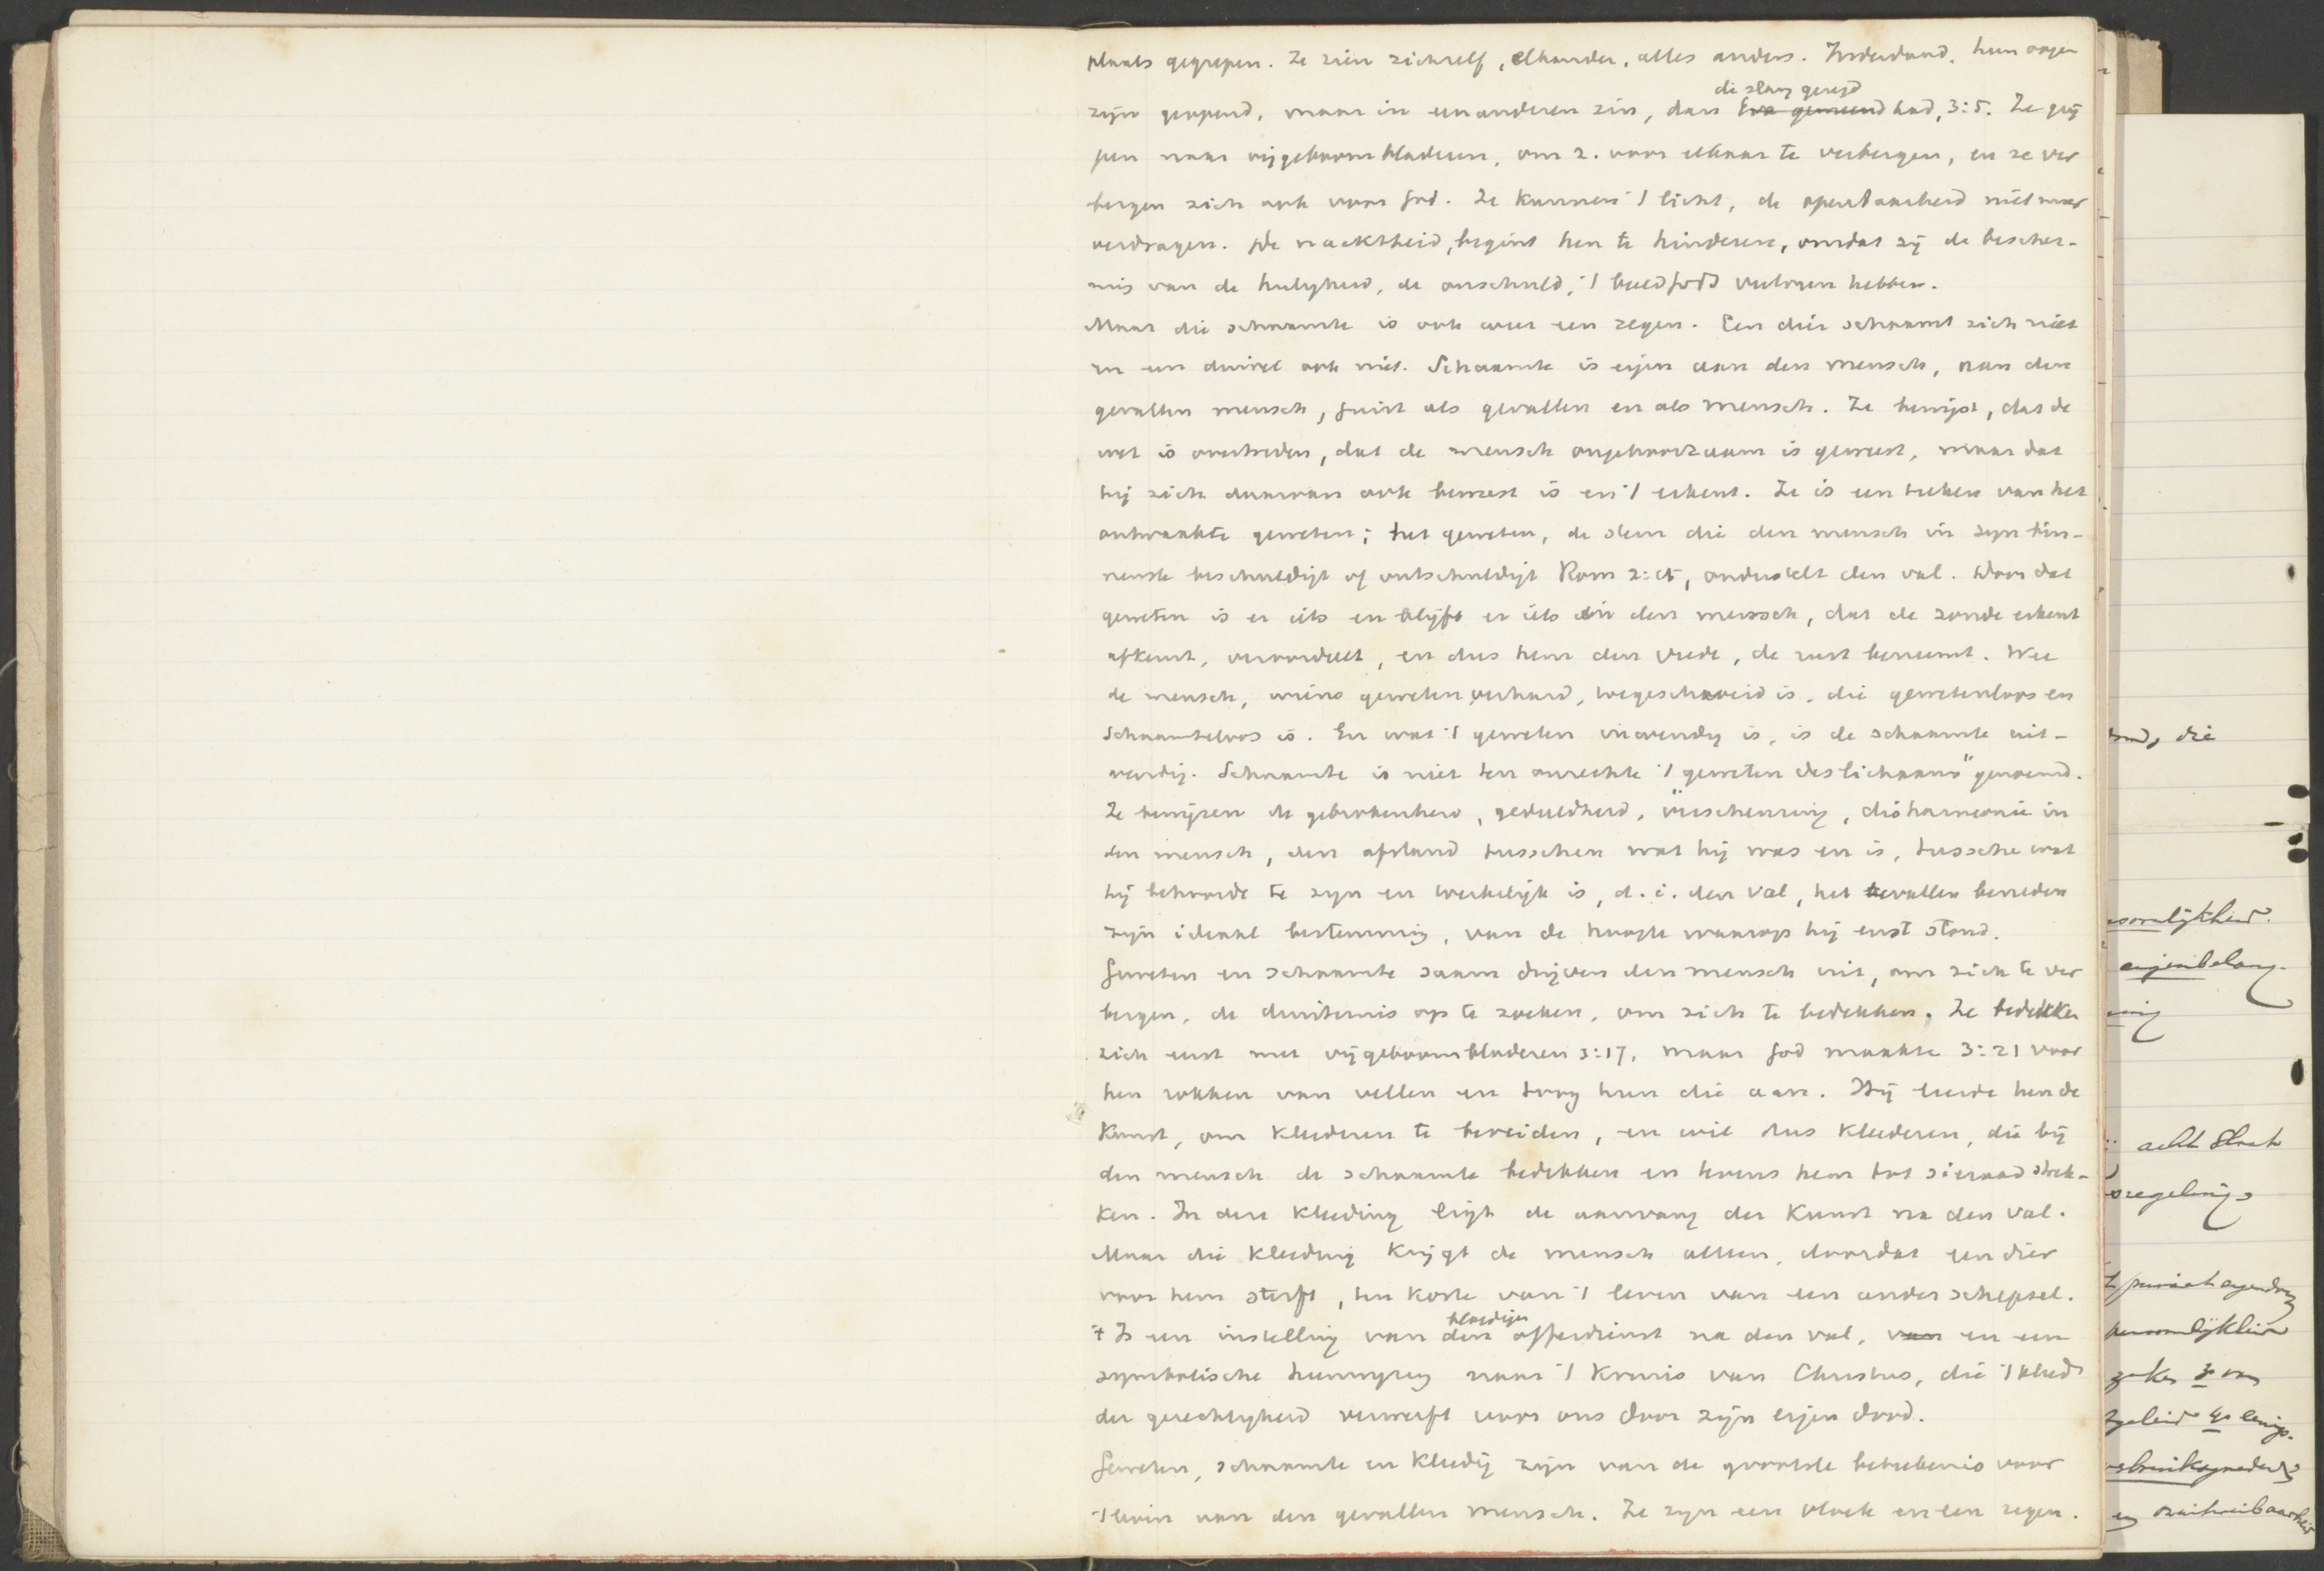 plaats gegrepen. Ze zien zichzelf, elkander, alles anders. Inderdaad, hun oogen
die slang gezegd
zijn geopend, maar in een anderen zin, dan Eva gemeend had, 3:5. Ze grij
pen naar vijgeboombladeren, om z. voor elkaar te verbergen, en ze ver
bergen zich ook voor God. Ze kunnen 't licht, de openbaarheid niet meer
verdragen. De nacktheid, begint hen te hinderen, omdat zij de bescher-
mis van de heiligheid, de onschuld, 't beeld Gods verloren hebben.
Maar die schaamte is ook weer een zegen. Een dier schaamt zich niet
en een duivel ook niet. Schaamte is eigen aan den mensch, aan den
gevallen mensch, juist als gevallen en als mensch. Ze bewijst, dat de
wet is overtreden, dat de mensch ongehoorzaam is geweest, maar dat
hij zich daarvan ook bewust is en 't erkent. Ze is een teeken van het
ontwaakte geweten; het geweten, de stem die den mensch in zijn bin-
nenste beschuldigt of ontschuldigt Rom 2:15, onderstelt den val. Door dat
geweten is er iets en blijft er iets in den mensch, dat de zonde erkent
afkeurt, veroordeelt, en dus hem den vrede, de rust beneemt. Wee
de mensch, wiens geweten verhard, toegeschroeid is, die gewetenloos en
schaamteloos is. En wat 't geweten inwendig is, is de schaamte uit-
wendig. Schaamte is niet ten onrechte 't geweten des lichaams" genoemd.
Ze bewijzen de gebrokenheid, gedeeldheid, verscheuring, disharmonie in
den mensch, den afstand tusschen wat hij was en is, tussche wat
hij behoorde te zijn en werkelijk is, d.i. den val, het vallen beneden
zijn ideaal bestemming, van de hoogte waarop hij eerst stond.
Geweten en schaamte saam drijven den mensch uit, om zich te ver
bergen, de duisternis op te zoeken, om zich te bedekken. Ze bedekken
zich eerst met vijgeboombladeren 3:17, maar God maakte 3:21 voor
hen rokken van vellen en toog hun die aan. Hij leerde hen de
kunst, om kleederen te bereiden, en wil dus kleederen, die bij
den mensch de schaamte bedekken en tevens hem tot sieraad strek-
ken. In deze kleeding ligt de aanvang der kunst na den val.
Maar die kleeding krijgt de mensch alleen, doordat een dier
voor hem sterft, ten koste van 't leven van een ander schepsel.
bloedigen
't Is een instelling van den offerdienst na den val, van en een
symbolische heenwijzing naar 't kruis van Christus, die 't kleed
der gerechtigheid verwerft voor ons door zijn eigen dood.
Geweten, schaamte en kledij zijn van de grootste beteekenis voor
't leven van den gevallen mensch. Ze zijn een vloek en een zegen.
die
eigenbelang.
acht